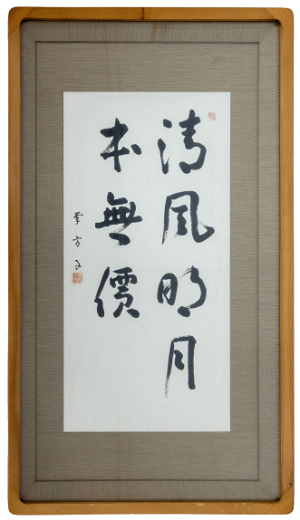 清風明月
本無價
李方子